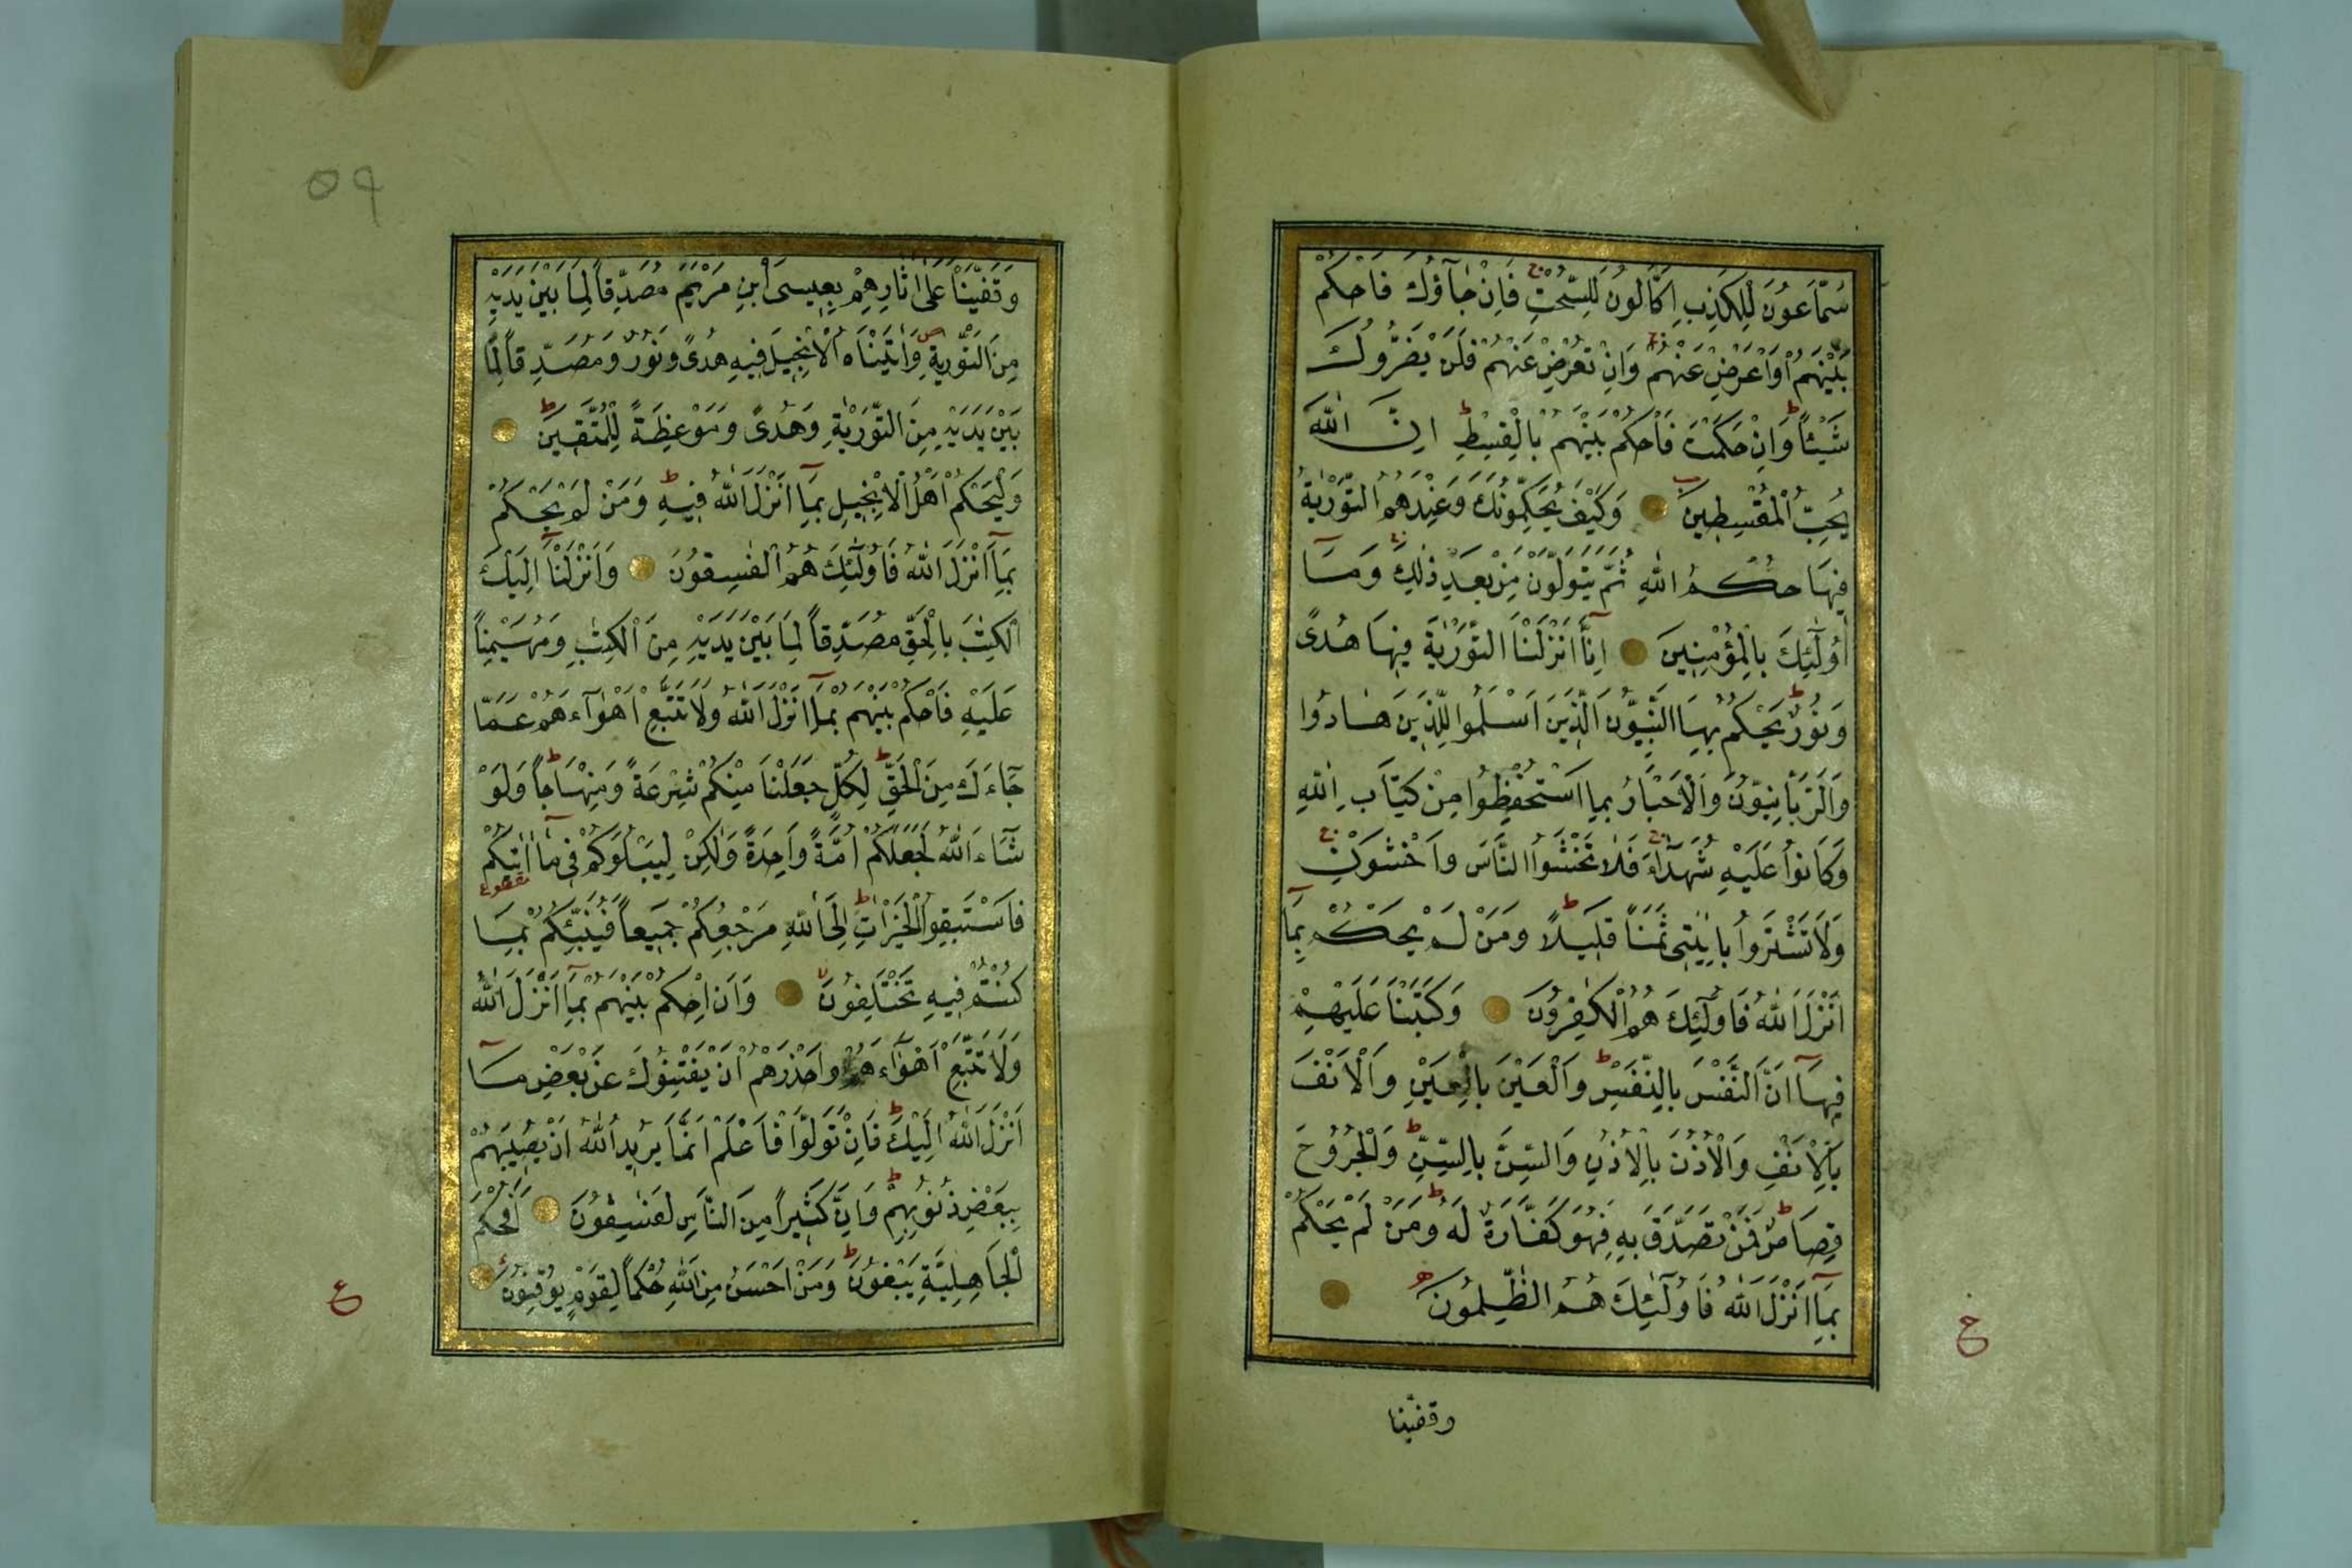 سَمَّاعُونَ لِلْكَذِبِ اَكَّالُونَ لِلسُّحْتِ فَاِنْ جَآؤُكَ فَاحْكُمْ
بَيْنَهُمْ اَوْ اَعْرِضْ عَنْهُمْ وَاِنْ تُعْرِضْ عَنْهُمْ فَلَنْ يَضُرُّوكَ
شَيْئاً وَاِنْ حَكَمْتَ فَاحْكُمْ بَيْنَهُمْ بِالْقِسْطِ اِنَّ اللّٰهَ
يُحِبُّ الْمُقْسِطِينَ وَكَيْفَ يُحَكِّمُونَكَ وَعِنْدَهُمُ التَّوْرٰيةُ
فِيهَا حُكْمُ اللّٰهِ ثُمَّ يَتَوَلَّوْنَ مِنْ بَعْدِ ذٰلِكَ وَمَآ
اُولٰٓئِكَ بِالْمُؤْمِنِينَ اِنَّآ اَنْزَلْنَا التَّوْرٰيةَ فِيهَا هُدًى
وَنُورٌ يَحْكُمُ بِهَا النَّبِيُّونَ الَّذِينَ اَسْلَمُوا لِلَّذِينَ هَادُوا
وَالرَّبَّانِيُّونَ وَالْاَحْبَارُ بِمَا اسْتُحْفِظُوا مِنْ كِتَابِ اللّٰهِ
وَكَانُوا عَلَيْهِ شُهَدَآءَ فَلَا تَخْشَوُا النَّاسَ وَاخْشَوْنِ
وَلَا تَشْتَرُوا بِاٰيٰتِى ثَمَناً قَلِيلًا وَمَنْ لَمْ يَحْكُمْ بِمَآ
اَنْزَلَ اللّٰهُ فَاُولٰٓئِكَ هُمُ الْكٰفِرُونَ وَكَتَبْنَا عَلَيْهِمْ
فِيهَآ اَنَّ النَّفْسَ بِالنَّفْسِ وَالْعَيْنَ بِالْعَيْنِ وَالْاَنْفَ
بِالْاَنْفِ وَالْاُذُنَ بِالْاُذُنِ وَالسِّنَّ بِالسِّنِّ وَالْجُرُوحَ
قِصَاصٌ فَمَنْ تَصَدَّقَ بِهِ فَهُوَ كَفَّارَةٌ لَهُ وَمَنْ لَمْ يَحْكُمْ
بِمَآ اَنْزَلَ اللّٰهُ فَاُولٰٓئِكَ هُمُ الظّٰلِمُونَ
وقفينا
٥٩
وَقَفَّيْنَا عَلٰى اٰثَارِهِمْ بِعِيسَى ابْنِ مَرْيَمَ مُصَدِّقاً لِمَا بَيْنَ يَدَيْهِ
مِنَ التَّوْرٰيةِ وَاٰتَيْنَاهُ الْاِنْجِيلَ فِيهِ هُدًى وَنُورٌ وَمُصَدِّقاً لِمَا
بَيْنَ يَدَيْهِ مِنَ التَّوْرٰيةِ وَهُدًى وَمَوْعِظَةً لِلْمُتَّقِينَ
وَلْيَحْكُمْ اَهْلُ الْاِنْجِيلِ بِمَآ اَنْزَلَ اللّٰهُ فِيهِ وَمَنْ لَمْ يَحْكُمْ
بِمَآ اَنْزَلَ اللّٰهُ فَاُولٰٓئِكَ هُمُ الْفٰسِقُونَ وَاَنْزَلْنَآ اِلَيْكَ
الْكِتٰبَ بِالْحَقِّ مُصَدِّقاً لِمَا بَيْنَ يَدَيْهِ مِنَ الْكِتٰبِ وَمُهَيْمِناً
عَلَيْهِ فَاحْكُمْ بَيْنَهُمْ بِمَآ اَنْزَلَ اللّٰهُ وَلَا تَتَّبِعْ اَهْوَآءَهُمْ عَمَّا
جَآءَكَ مِنَ الْحَقِّ لِكُلٍّ جَعَلْنَا مِنْكُمْ شِرْعَةً وَمِنْهَاجاً وَلَوْ
شَآءَ اللّٰهُ لَجَعَلَكُمْ اُمَّةً وَاحِدَةً وَلٰكِنْ لِيَبْلُوَكُمْ فِى مَآ اٰتٰيكُمْ
فَاسْتَبِقُوا الْخَيْرَاتِ اِلَى اللّٰهِ مَرْجِعُكُمْ جَمِيعاً فَيُنَبِّئُكُمْ بِمَا
كُنْتُمْ فِيهِ تَخْتَلِفُونَ وَاَنِ احْكُمْ بَيْنَهُمْ بِمَآ اَنْزَلَ اللّٰهُ
وَلَا تَتَّبِعْ اَهْوَآءَهُمْ وَاحْذَرْهُمْ اَنْ يَفْتِنُوكَ عَنْ بَعْضِ مَآ
اَنْزَلَ اللّٰهُ اِلَيْكَ فَاِنْ تَوَلَّوْا فَاعْلَمْ اَنَّمَا يُرِيدُ اللّٰهُ اَنْ يُصِيبَهُمْ
بِبَعْضِ ذُنُوبِهِمْ وَاِنَّ كَثِيراً مِنَ النَّاسِ لَفٰسِقُونَ اَفَحُكْمَ
الْجَاهِلِيَّةِ يَبْغُونَ وَمَنْ اَحْسَنُ مِنَ اللّٰهِ حُكْماً لِقَوْمٍ يُوقِنُونَ
ع